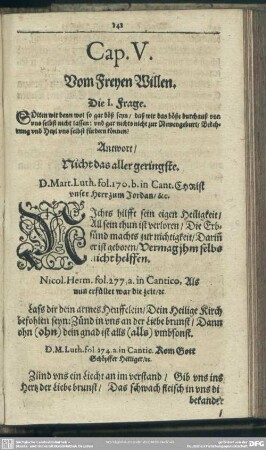 242
Cap. V.
Vom Freyen Willen.
Die I. Frage.
Sölten wir denn wol so gar böß seyn / daß wir das böße durchauß von
uns selbst nicht lassen: und gar nichts nicht zur Newengeburt / Bekeh-
rung und Heyl uns selbst fürdern können /
Antwort /
Nicht das aller geringste.
D. Mart. Luth. fol. 170. b. in Cant. Christ
unser Herr zum Jordan / &c.
NIchts hilfft sein eigen Heiligkeit /
All sein thun ist verloren / Die Erb-
sünd machs zur nichtigkeit / Darin
er ist geboren / Vermag ihm selbs
nicht helffen.
Nicol. Herm. fol. 277. a. in Cantico, Als
nu erfüllet war die zeit / &c.
Laß dir dein armes Heufflein / Dein Heilige Kirch
befohlen seyn: Zünd in uns an der Liebe brunst / Dann
ohn (ohn) dein gnad ist alls (alls) umbsonst.
D. M. Luth. fol. 274. a. in Cantic. Kom Gott
Schöpffer Heiliger / &c.
Zünd uns ein Liecht an im verstand / Gib uns ins
Hertz der Liebe brunst / Das schwach fleisch in uns di
bekande: